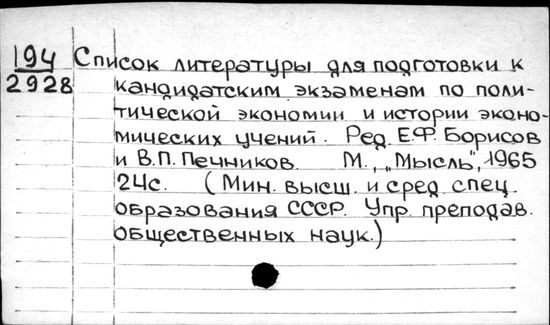 194 Список литературы для подготовки к
2928 кандидатским экзаменам по поли-
тической экономии и истории эконо-
мических учений. Ред. Е.Ф. Борисов
и В.П. Печников. М., „Мысль", 1965
24с. (Мин. высш. и сред спец.
образования СССР. Упр. преподав.
общественных наук.)